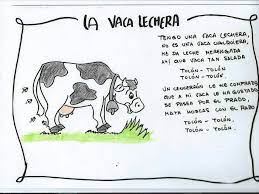 LA VACA LECHERA
TENGO UNA VACA LECHERA,
NO ES UNA VACA CUALQUIERA,
ME DA LECHE MERENGADA
AY! QUE VACA TAN SALADA
TOLÓN - TOLÓN
TOLÓN - TOLÓN.
UN CENCERRO LE HE COMPRADO
QUE A MI VACA LE HA GUSTADO
SE PASEA POR EL PRADO,
MATA MOSCAS CON EL RABO
TOLÓN - TOLÓN
TOLÓN - TOLÓN.